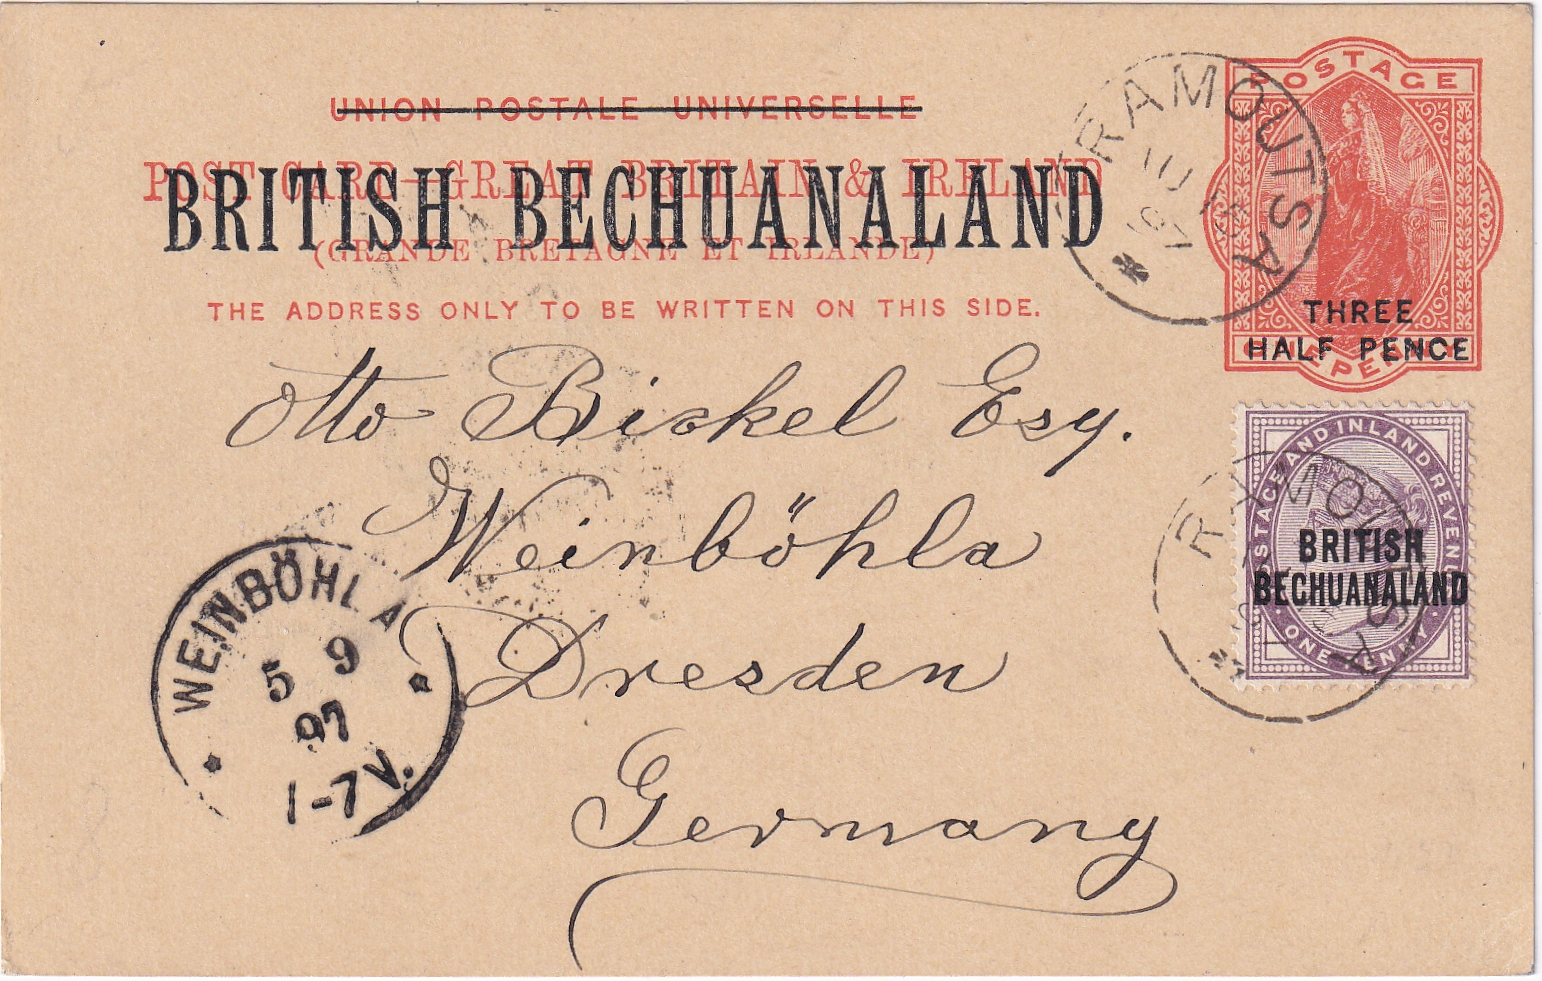 UNION POSTALE UNIVERSELLE
POST CARD — GREAT BRITAIN & IRELAND
BRITISH BECHUANALAND
(GRANDE BRETAGNE ET IRLANDE)
THE ADDRESS ONLY TO BE WRITTEN ON THIS SIDE.
POSTAGE
THREE
HALF PENCE
ONE PENNY
RAMOUTSA
Otto Bickel Esq.
Weinböhla
Dresden
Germany
POSTAGE AND INLAND REVENUE
BRITISH
BECHUANALAND
ONE PENNY
RAMOUTSA
WEINBÖHLA
5 9
97
1-7V.